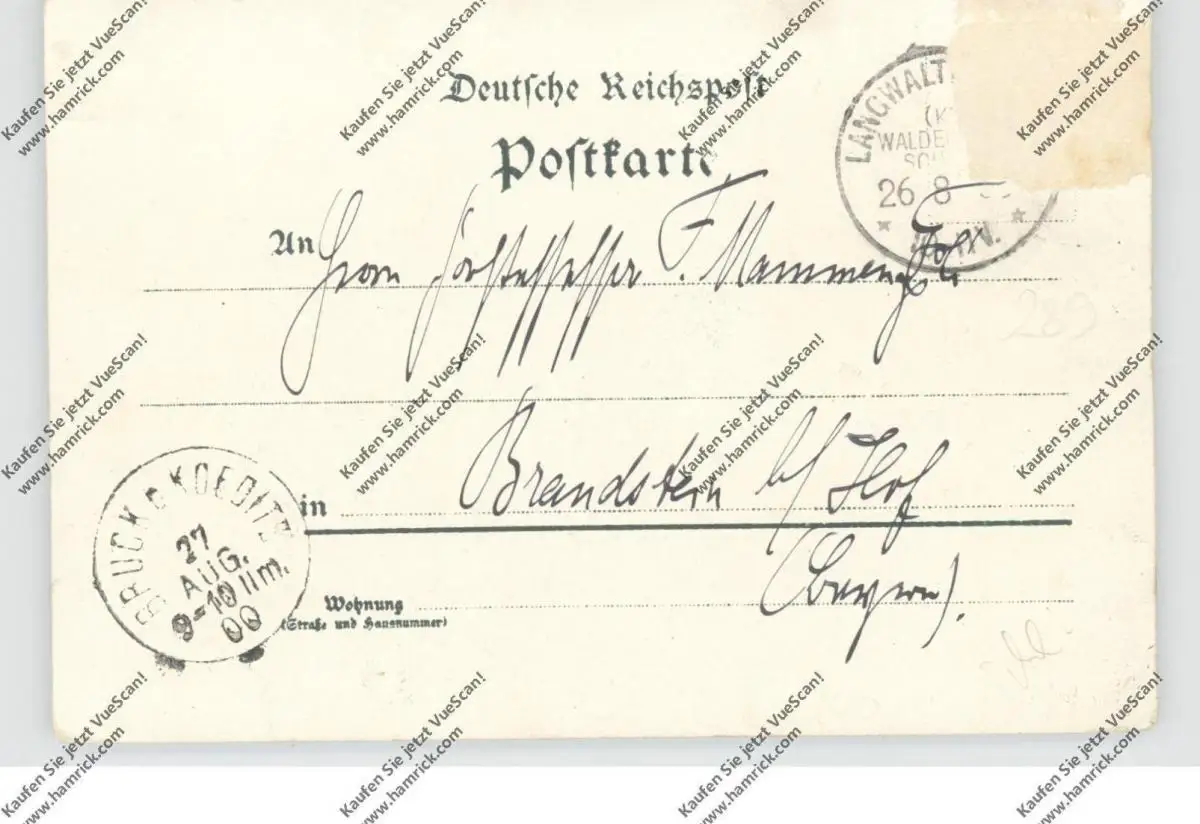 Deutsche Reichspost
Postkarte
LANGWALT
WALDE
26 8
An Herrn F. Mammen
in Brandstein b/ Hof
(Bayern).
Wohnung
(Straße und Hausnummer)
BRUCK B KOEDITZ
27
AUG.
9-10 Vm.
00
289
Kaufen Sie jetzt VueScan!
www.hamrick.com